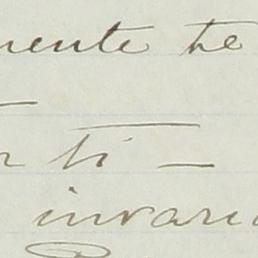 mente te
ti —
invaria